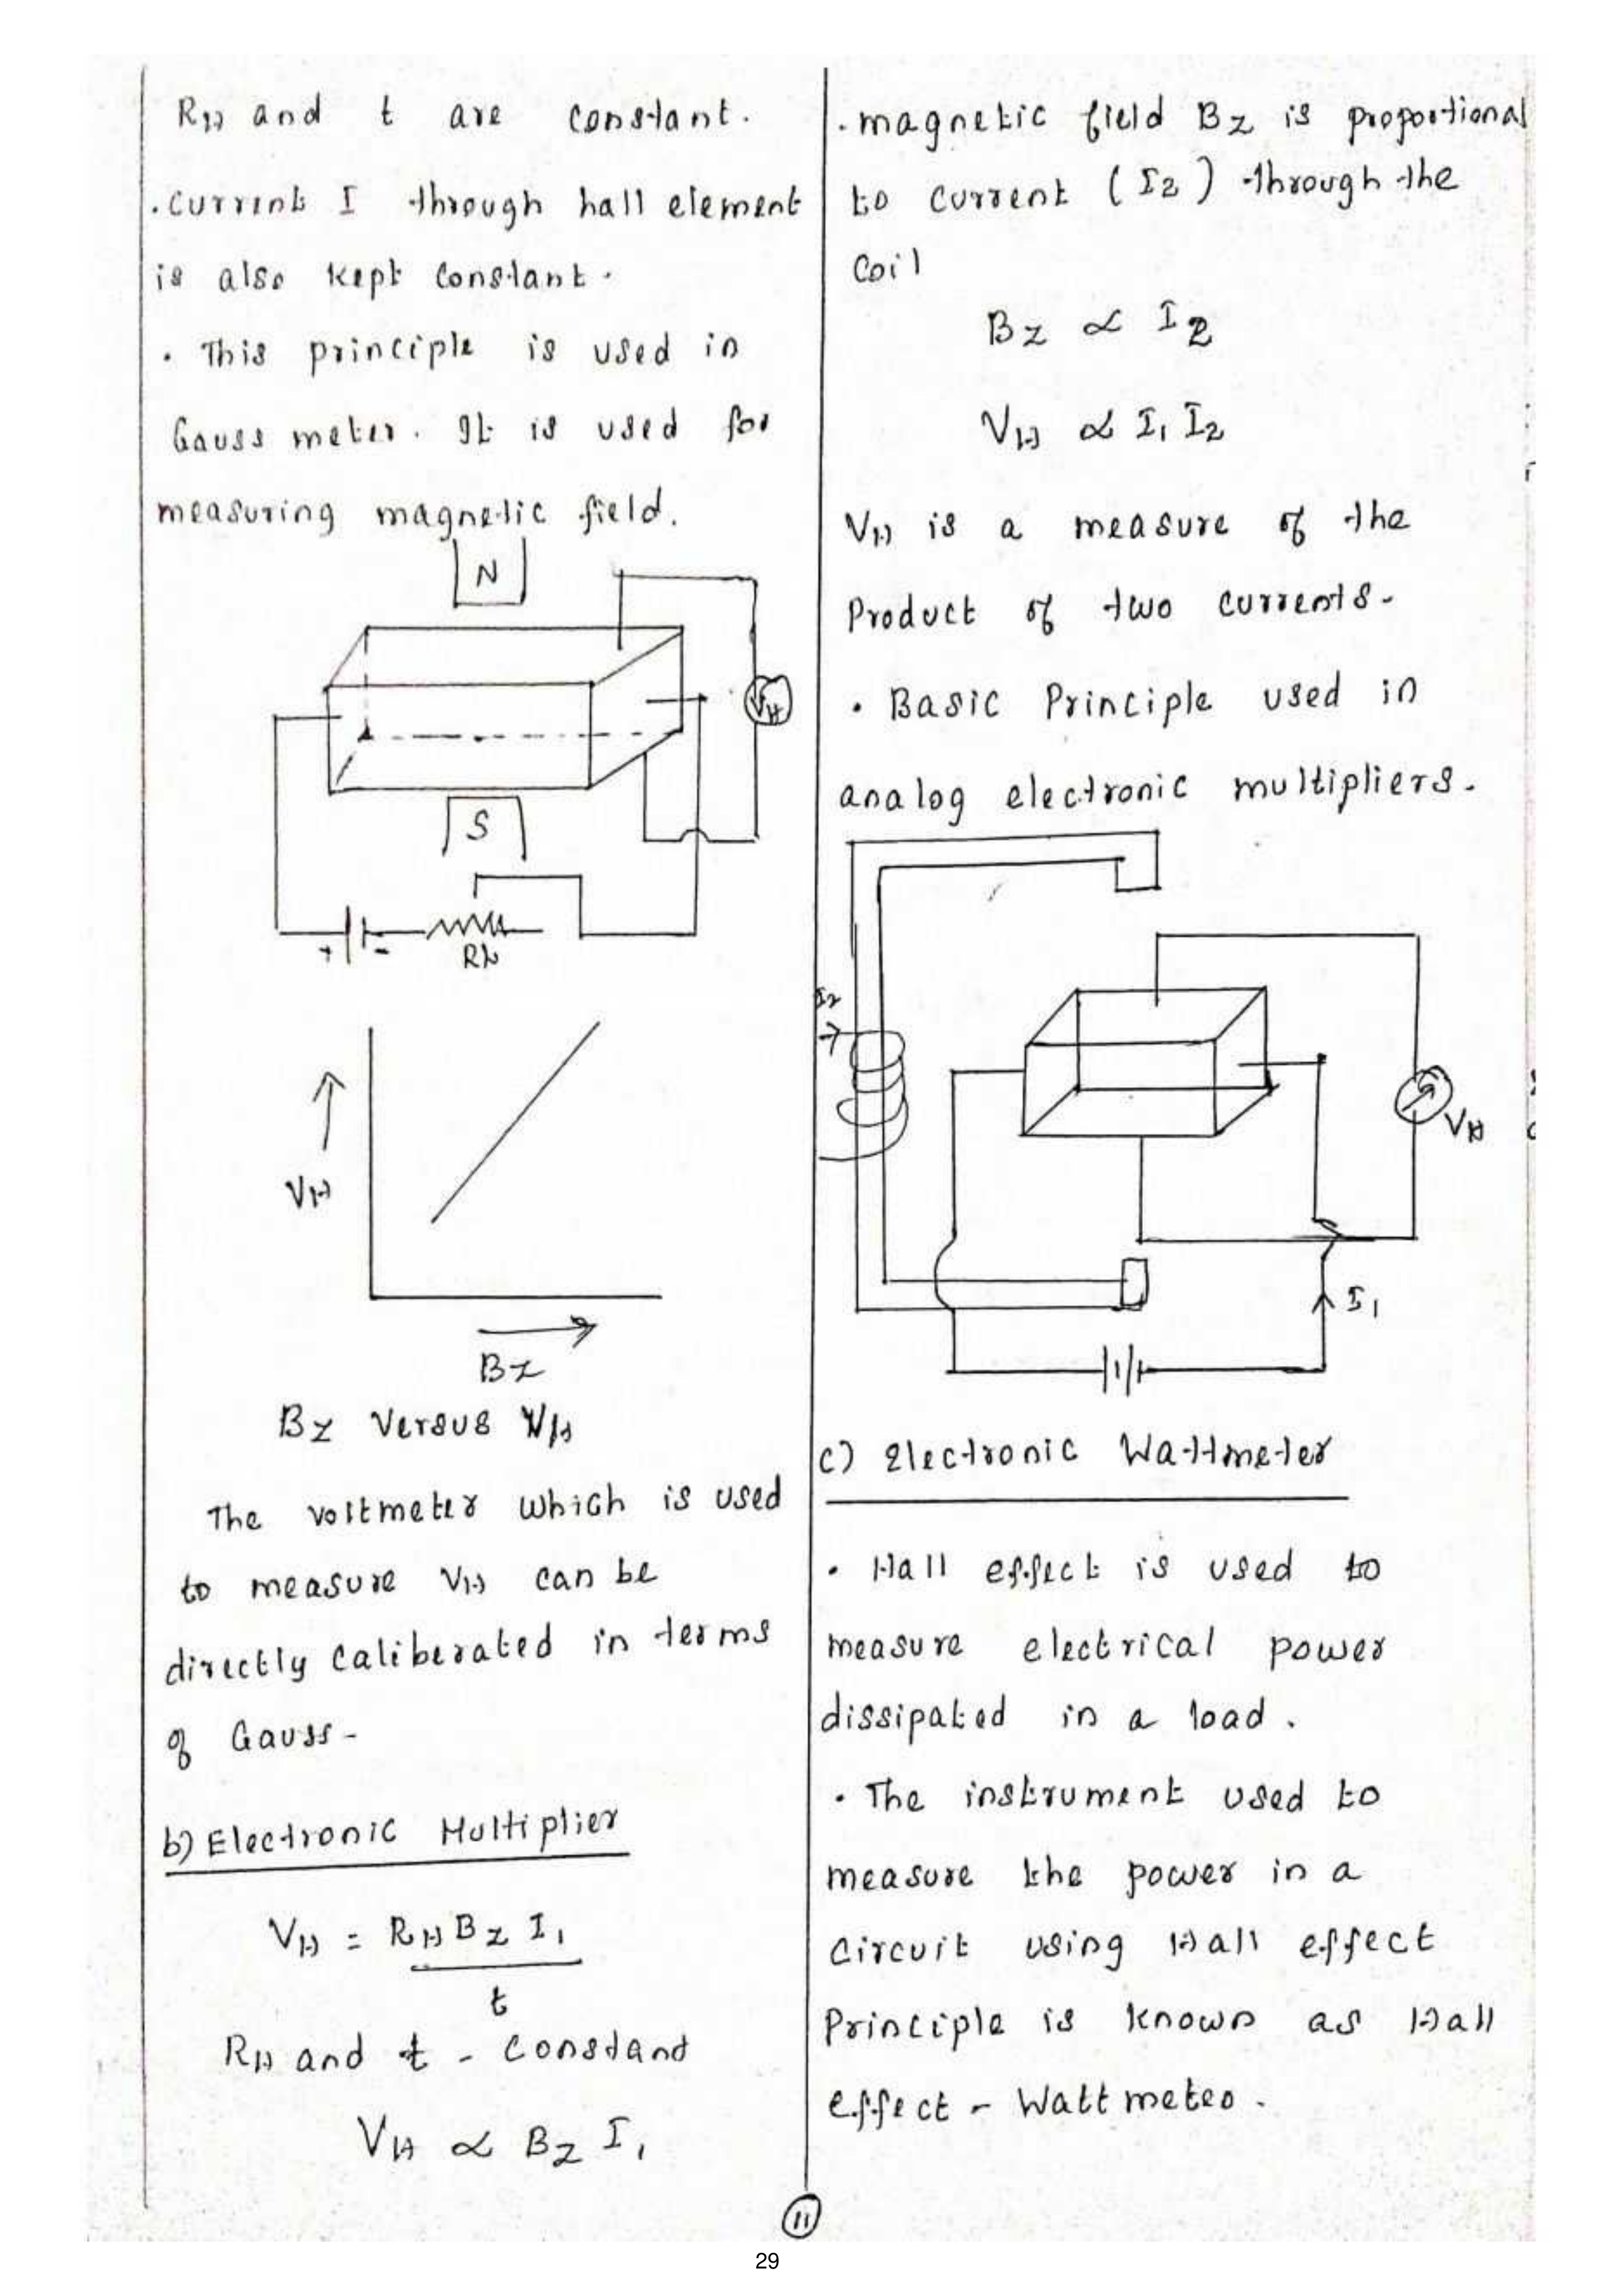 RH and t are constant.
. Current I through hall element
is also kept constant.
. This principle is used in
Gauss meter. It is used for
measuring magnetic field.
N
VH
S
+ -
Rh
VH
BZ
BZ versus VH
The voltmeter which is used
to measure VH can be
directly caliberated in terms
of Gauss -
b) Electronic Multiplier
VH = RH BZ I1
t
RH and t - constand
VH ∝ BZ I1
. magnetic field BZ is proportional
to current (I2) through the
coil
BZ ∝ I2
VH ∝ I1 I2
VH is a measure of the
Product of two currents -
. Basic Principle used in
analog electronic multipliers.
I2
VH
I1
c) Electronic Wattmeter
. Hall effect is used to
measure electrical power
dissipated in a load.
. The instrument used to
measure the power in a
circuit using Hall effect
Principle is known as Hall
effect - Wattmeter.
11
29